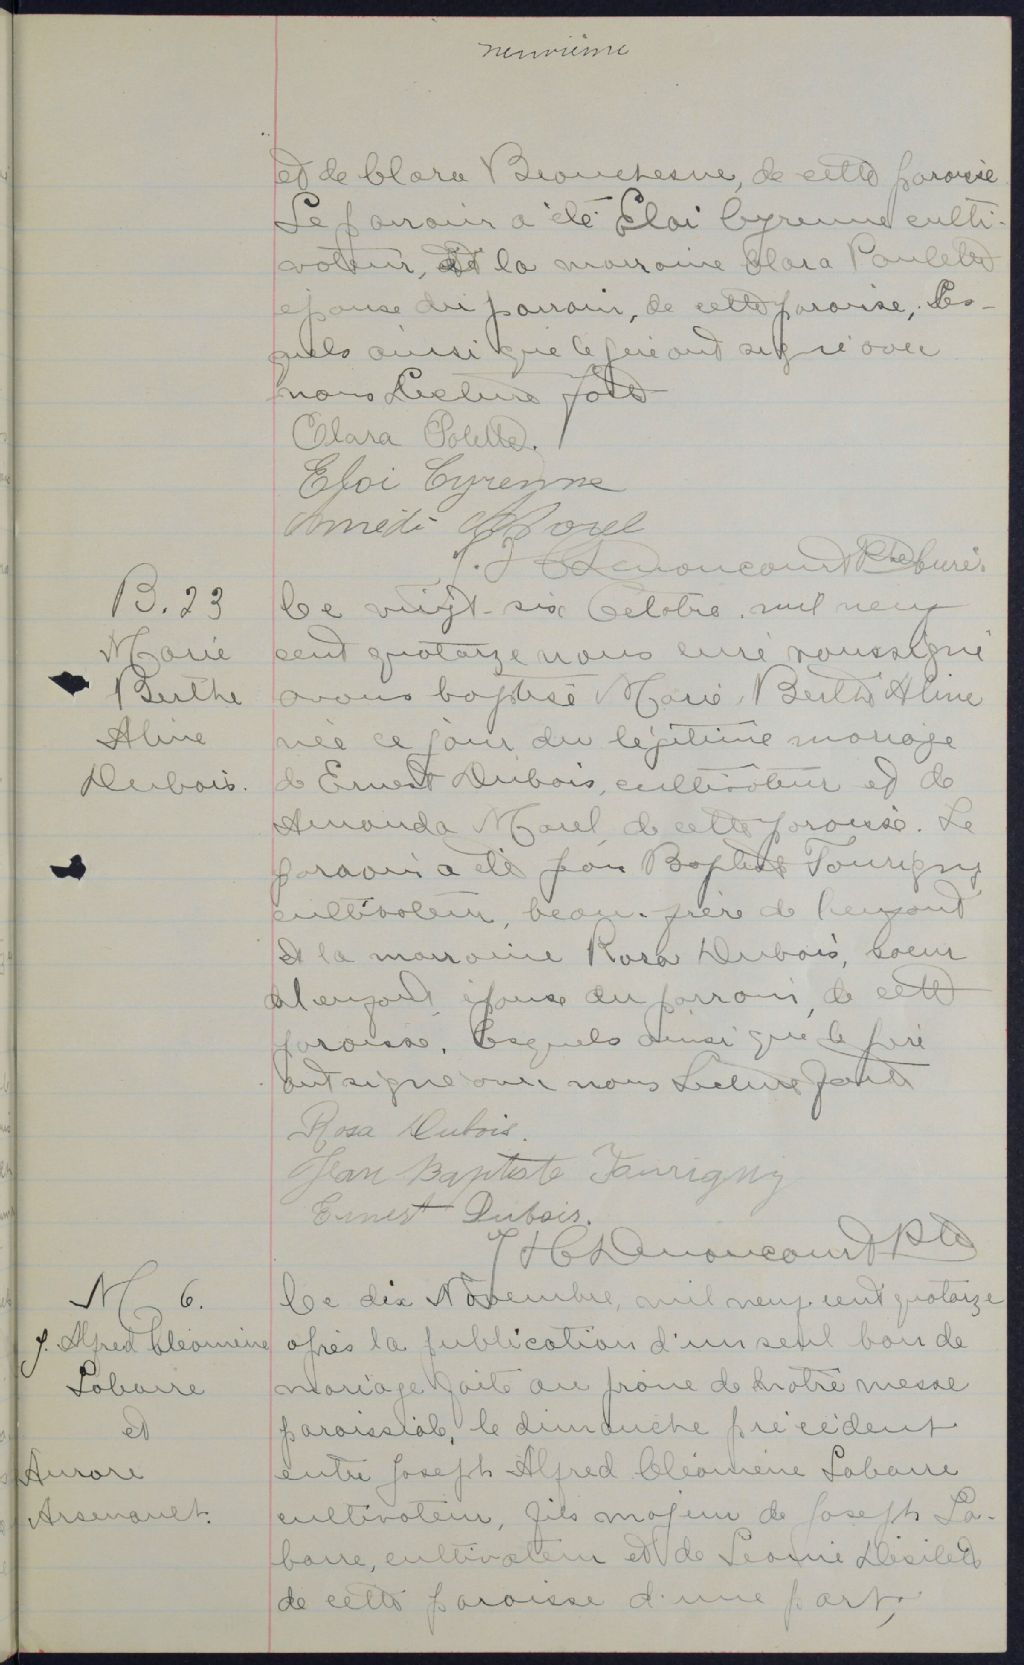 neuvième
et de Clara Beauchesne, de cette paroisse
Le parrain a été Eloi Cyrenne culti-
vateur, et la marraine Clara Paulette
epouse du parrain, de cette paroisse, les-
quels ainsi que le père ont signé avec
nous Lecture faite
Clara Polette.
Eloi Cyrenne
Amédé Morel
J. H C Denoncourt Ptre curé.
B. 23
Marie
Berthe
Aline
Dubois.
Ce vingt-six Octobre mil neuf
cent quatorze nous curé soussigné
avons baptisé Marie Berthe Aline
née ce jour du légitime mariage
de Ernest Dubois, cultivateur et de
Amanda Morel de cette paroisse. Le
parrain a été Jean Baptiste Tourigny
cultivateur, beau-frère de l'enfant
et la marraine Rosa Dubois, soeur
de l'enfant, épouse du parrain, de cette
paroisse. Lesquels ainsi que le père
ont signé avec nous Lecture faite
Rosa Dubois.
Jean Baptiste Tourigny
Ernest Dubois.
J H C Denoncourt Ptre
M 6.
J. Alfred Cléomène
Labarre
et
Aurore
Arsenault.
Ce dix Novembre, mil neuf cent quatorze
après la publication d'un seul ban de
mariage faite au prône de notre messe
paroissiale, le dimanche précédent
entre Joseph Alfred Cléomène Labarre
cultivateur, fils majeur de Joseph La-
barre, cultivateur et de Leonie Désilets
de cette paroisse d'une part,